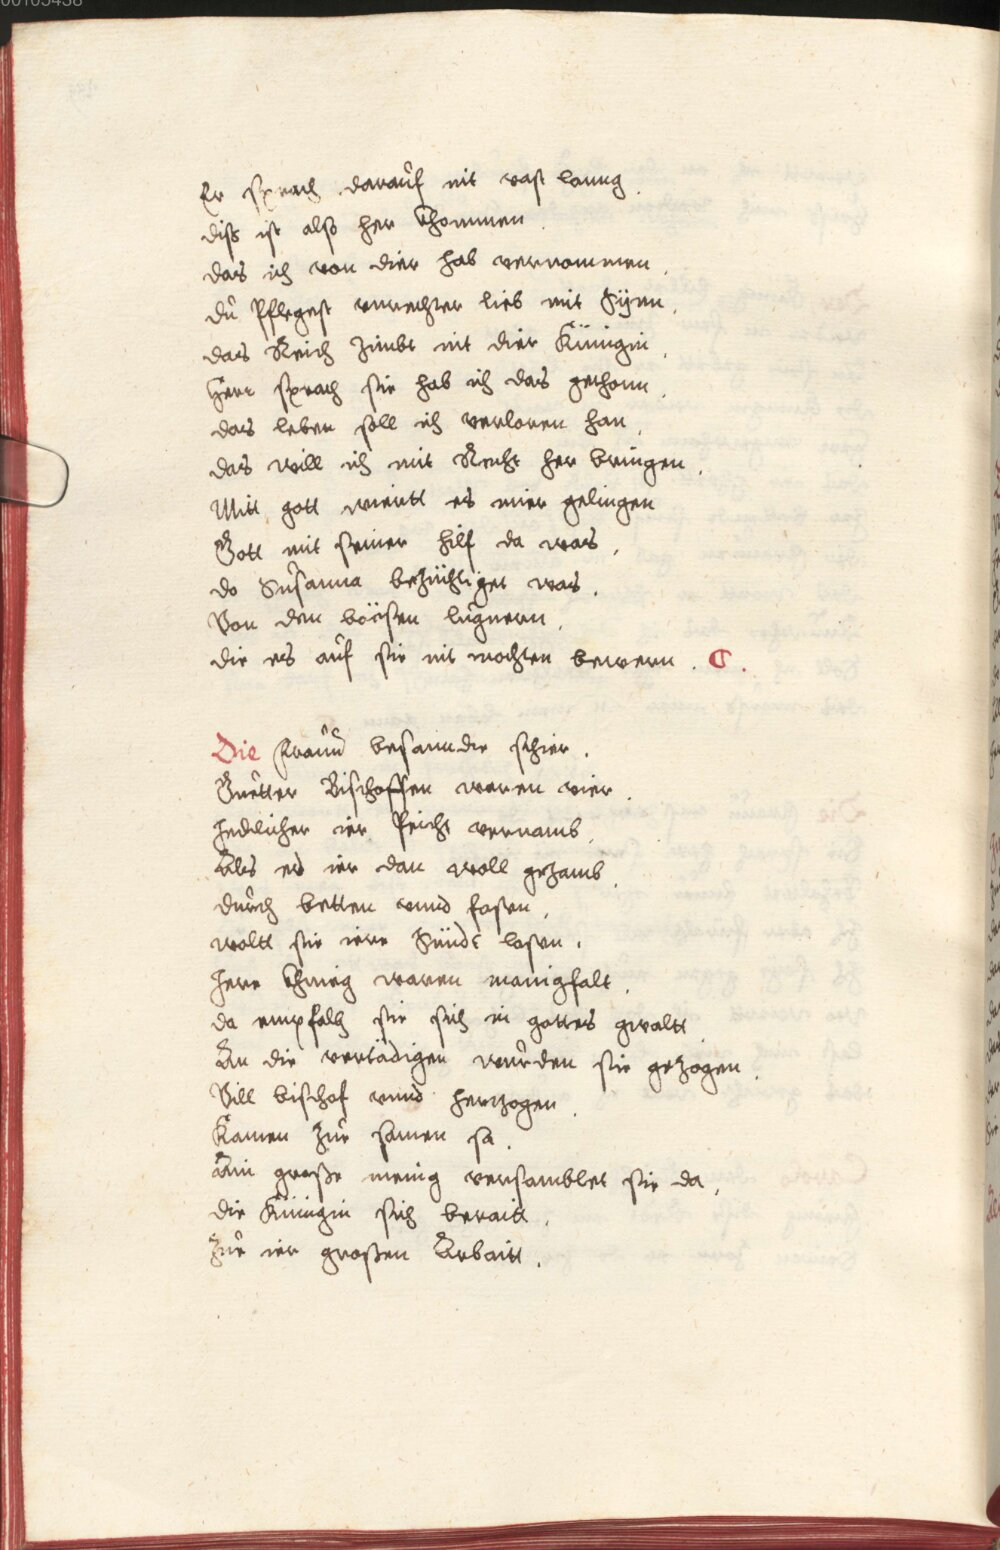 00105438
Er sprach darauf nit vast lanng.
diß ist alß her khommen.
das ich von dier hab vernommen.
du Pflegest vnrechter lieb mit Syen.
das Reich zimbt nit dier Künigin.
Herr sprach sie hab ich das gethonn.
das leben soll ich verloren han.
das will ich mit Recht her bringen.
Mitt gott wiertt es mier gelingen
Gott mit seiner hilf da was.
do Susanna bezüchtiget was.
Von den böesen lugnern.
die es auf sie nit mochten bewern. C.
Die Frauw besanndte schier.
Guetter Bischoffen waren vier.
Jedlicher ier Peicht vernamb.
Als es ier dan woll gezamb.
durch betten vnnd fasten.
woltt sie iere Sündt lasen.
Here khinig waren manigfalt.
da empfalh sie sich in gottes gwaltt
An die vertädigen wurden sie gezogen.
Vill bischof vnnd herzogen.
Kamen zur samen sa.
Ain große menig versamblet sie da.
die Künigin sich beraitt.
Zur ier großen Arbaitt.